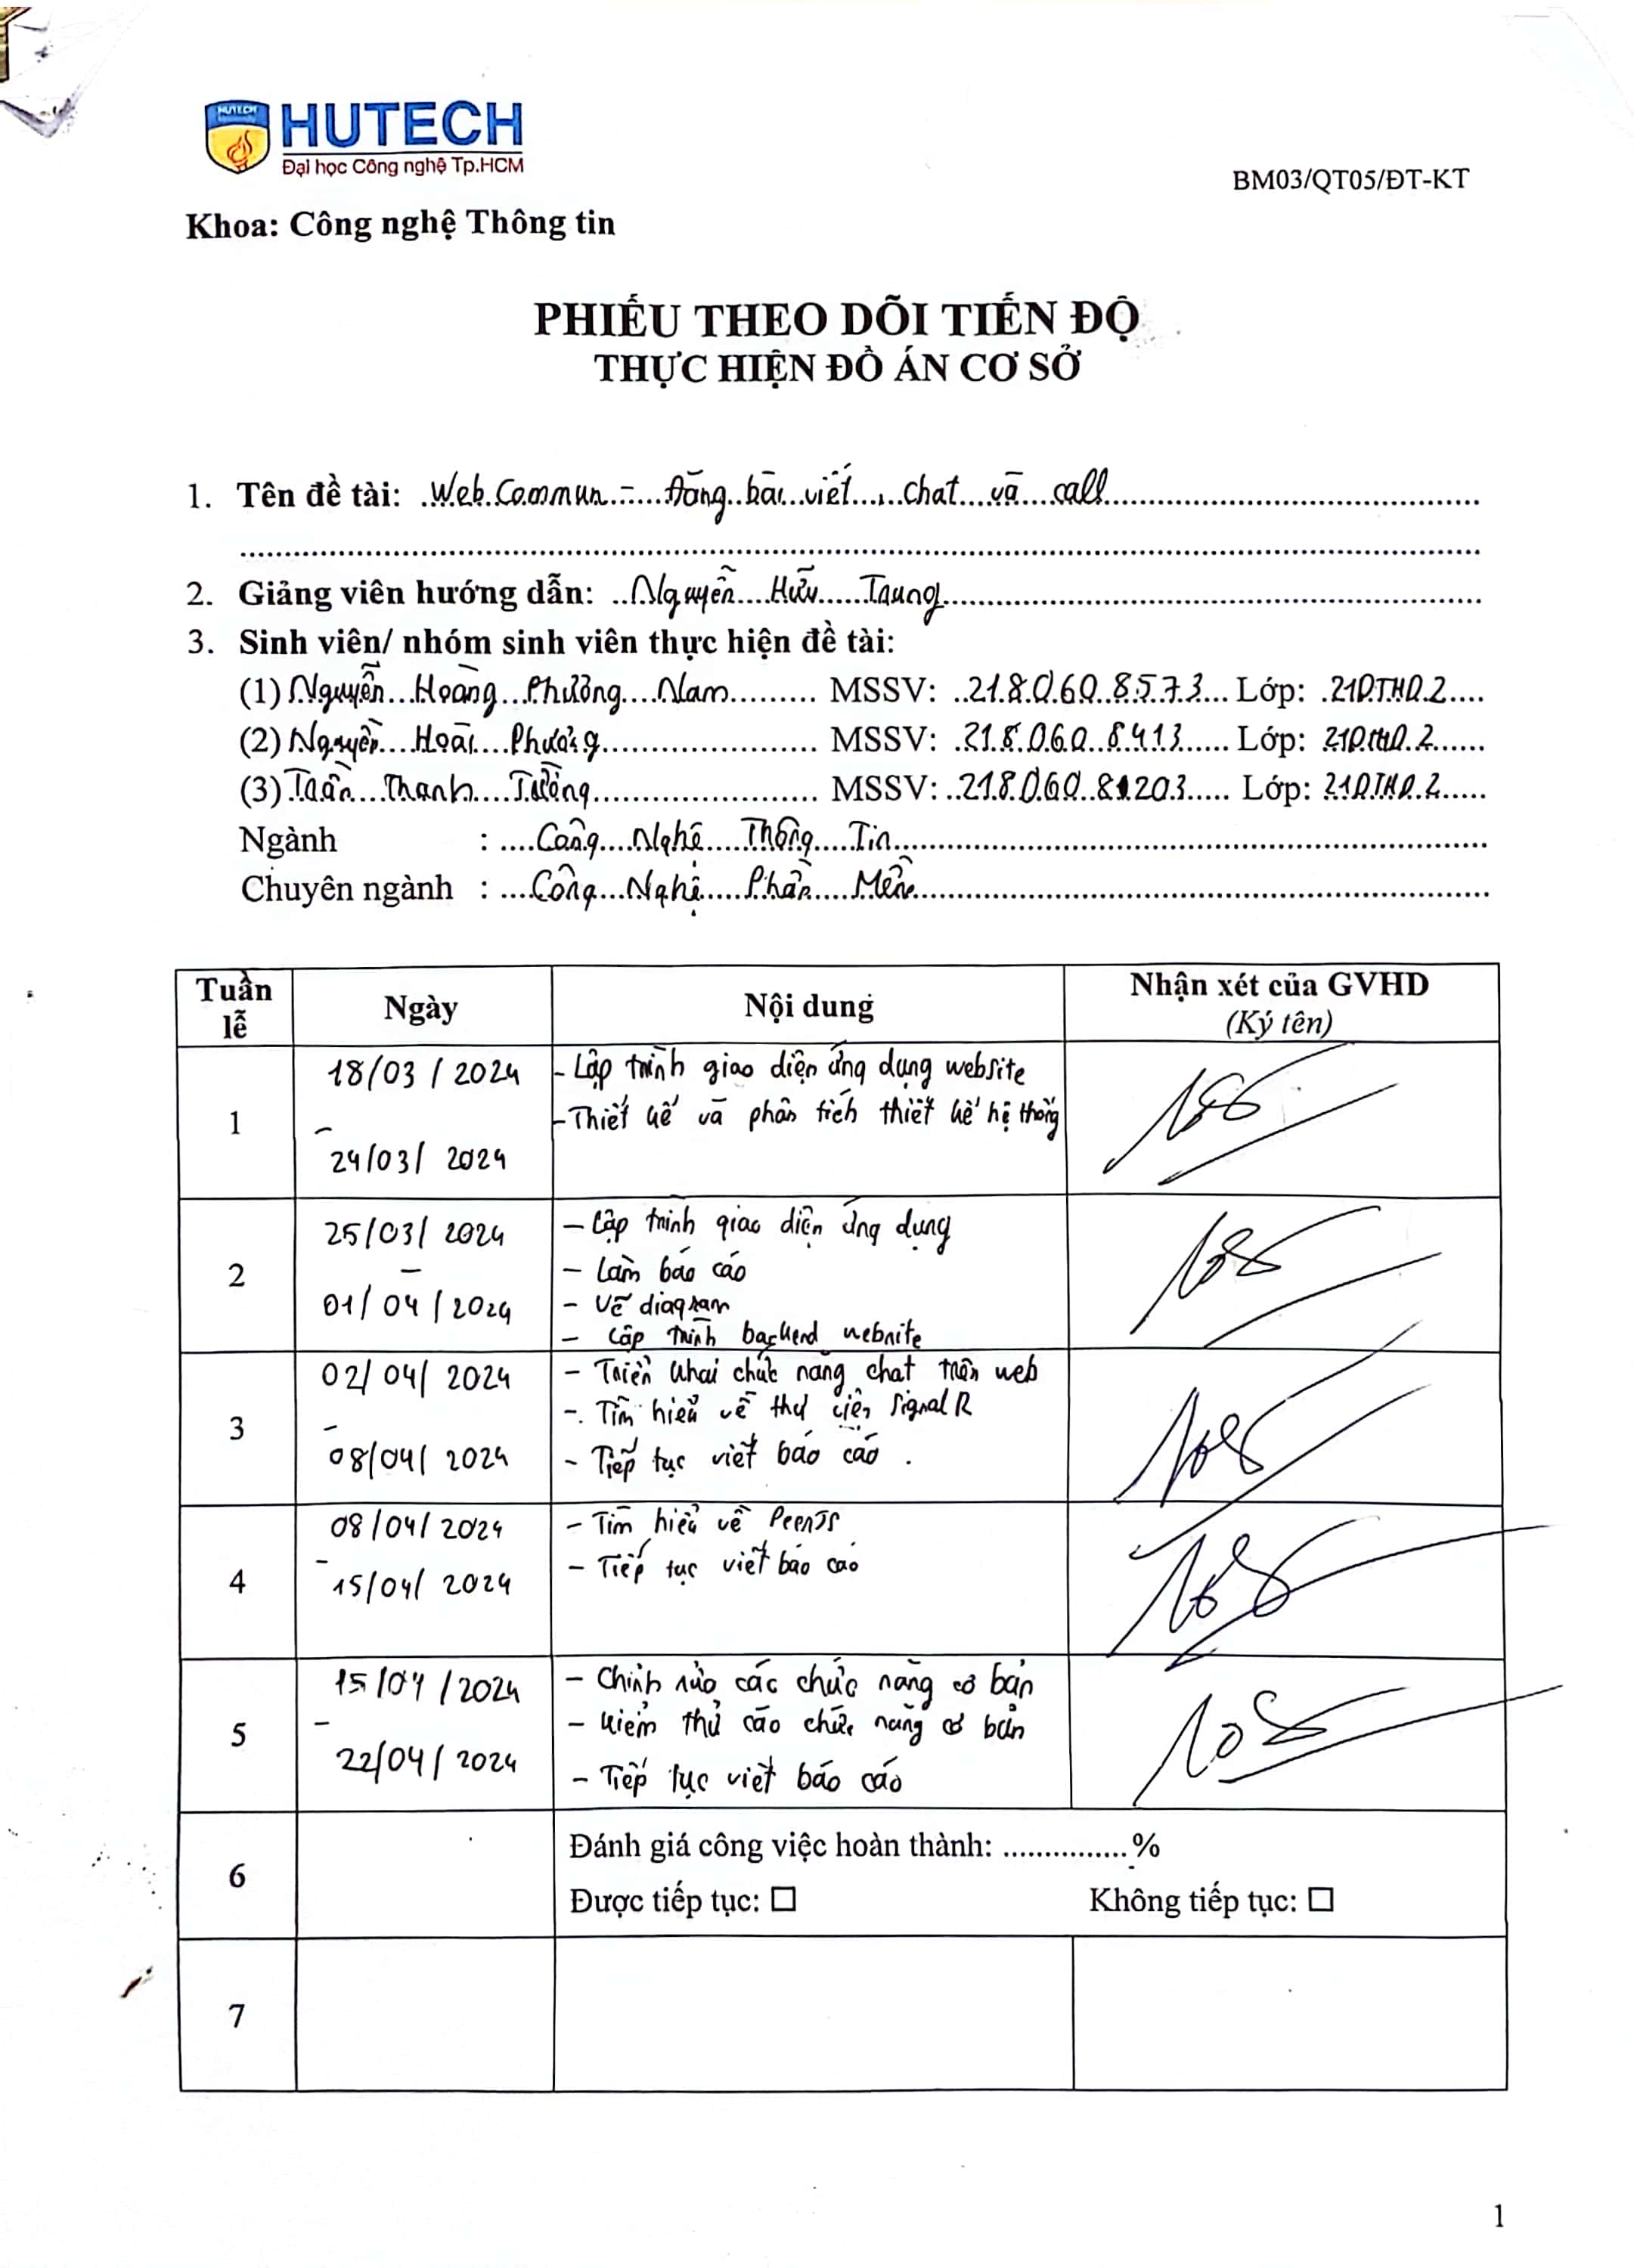 HUTECH
HUTECH
Đại học Công nghệ Tp.HCM
BM03/QT05/ĐT-KT
Khoa: Công nghệ Thông tin
PHIẾU THEO DÕI TIẾN ĐỘ
THỰC HIỆN ĐỒ ÁN CƠ SỞ
1. Tên đề tài: Web Commun - Đăng bài viết, chat và call
2. Giảng viên hướng dẫn: Nguyễn Hữu Trung
3. Sinh viên/ nhóm sinh viên thực hiện đề tài:
(1) Nguyễn Hoàng Phương Nam MSSV: 2180608573 Lớp: 21DTHD2
(2) Nguyễn Hoài Phương MSSV: 2180608413 Lớp: 21DTHD2
(3) Trần Thanh Tường MSSV: 21806081203 Lớp: 21DTHD2
Ngành : Công Nghệ Thông Tin
Chuyên ngành : Công Nghệ Phần Mềm
Tuần lễ Ngày Nội dung Nhận xét của GVHD
(Ký tên)
1 18/03/2024 - 24/03/2024
- Lập trình giao diện ứng dụng website
- Thiết kế và phân tích thiết kế hệ thống
2 25/03/2024 - 01/04/2024
- Lập trình giao diện ứng dụng
- Làm báo cáo
- Vẽ diagram
- Lập trình backend website
3 02/04/2024 - 08/04/2024
- Triển khai chức năng chat trên web
- Tìm hiểu về thư viện SignalR
- Tiếp tục viết báo cáo.
4 08/04/2024 - 15/04/2024
- Tìm hiểu về PeerJS
- Tiếp tục viết báo cáo
5 15/04/2024 - 22/04/2024
- Chỉnh sửa các chức năng cơ bản
- Kiểm thử các chức năng cơ bản
- Tiếp tục viết báo cáo
6 Đánh giá công việc hoàn thành: ...............%
Được tiếp tục: ☐ Không tiếp tục: ☐
7
1